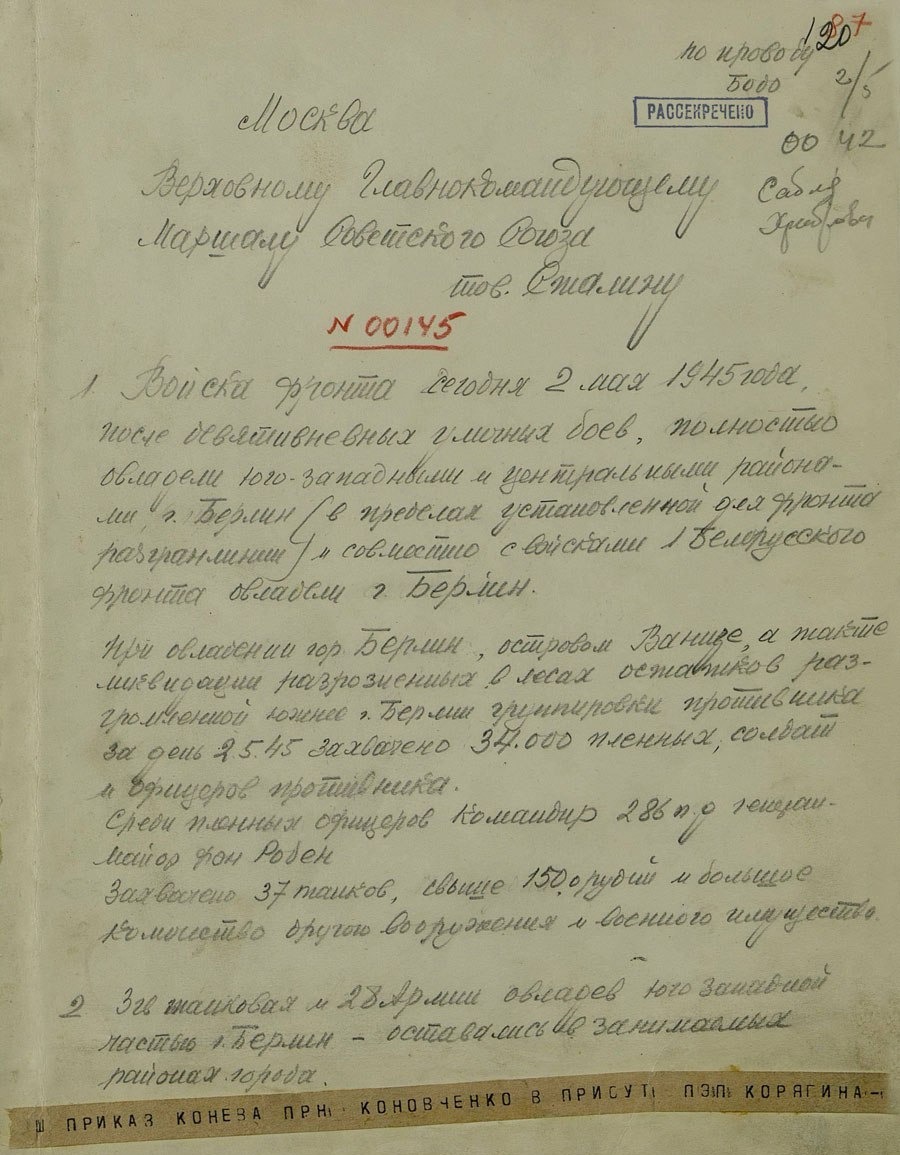 87
120
по проводу
Бодо
2/5
РАССЕКРЕЧЕНО
00 42
Москва
Верховному Главнокомандующему
Сабля
Маршалу Советского Союза
тов. Сталину
N 00145
1. Войска фронта сегодня 2 мая 1945 года,
после девятидневных уличных боев, полностью
овладели юго-западными и центральными района-
ми г. Берлин (в пределах установленной для фронта
разгранлинии) и совместно с войсками 1 Белорусского
фронта овладели г. Берлин.
При овладении гор. Берлин, островом Ванзе, а также
ликвидации разрозненных в лесах остатков раз-
громленной южнее г. Берлин группировки противника
за день 2.5.45 захвачено 34.000 пленных, солдат
и офицеров противника.
Среди пленных офицеров командир 286 п.д генерал-
майор фон Робен
Захвачено 37 танков, свыше 150 орудий и большое
количество другого вооружения и военного имущества.
2 3 гв танковая и 28 Армии овладев юго западной
частью г. Берлин - оставались в занимаемых
районах города.
Ш ПРИКАЗ КОНЕВА ПРН КОНОВЧЕНКО В ПРИСУТ ПЭП КОРЯГИНА-